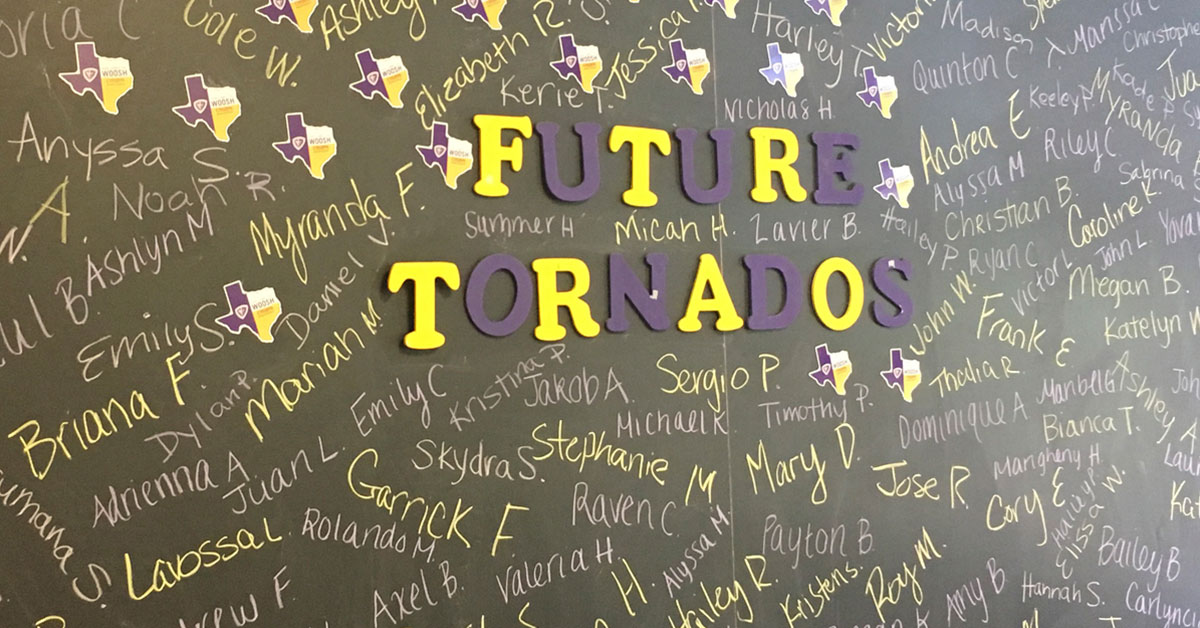 Cole W.
Ashley
Elizabeth R.
Kerie T.
Jessica
Harley
Victoria
Madisen
Marissa C
Christophe
Quinton C
Nicholas H.
Keeley
Myranda
WOOSH
WOOSH
WOOSH
WOOSH
FUTURE
Andrea E
Riley C
Alyssa M
Sabrina
Anyssa S.
Noah R.
Myranda F.
Summer H
Micah H.
Zavier B.
Hailey P.
Christian B.
Caroline K.
Ryan C
John L.
Victor L.
Megan B.
Ashlyn M
Daniel J.
TORNADOS
John W.
Frank E
Katelyn
Emily S.
Mariah M.
Briana F
Dylan P.
Emily C
Kristina P.
Jakob A.
Sergio P.
Thalia R
Michael K
Timothy P.
Dominique A
Maribelle
Ashley A
Bianca T.
Adrienna A
Juan L.
Skydra S.
Stephanie M
Mary D.
Jose R
Marigheny H
Cory E
Garrick F.
Raven C
Alyssa M.
Payton B.
Elissa W.
Bailey B
Larossa L.
Rolando M.
Valeria H.
Axel B.
H.
Hailey R.
Kristen S.
Roy M.
Amy B
Hannah S.